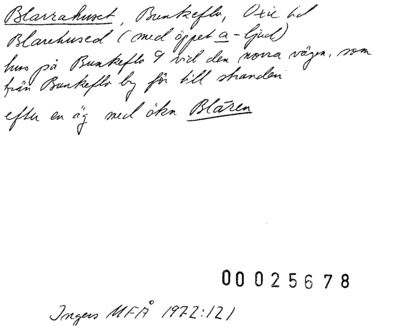 Blarrahuset, Bunkeflo, Oxie hd
Blarehused (med öppet a-ljud)
hus på Bunkeflo 9 vid den norra vägen, som
från Bunkeflo by för till stranden
efter en äg med ökn Blären
00025678
Ingers MFÅ 1972:121